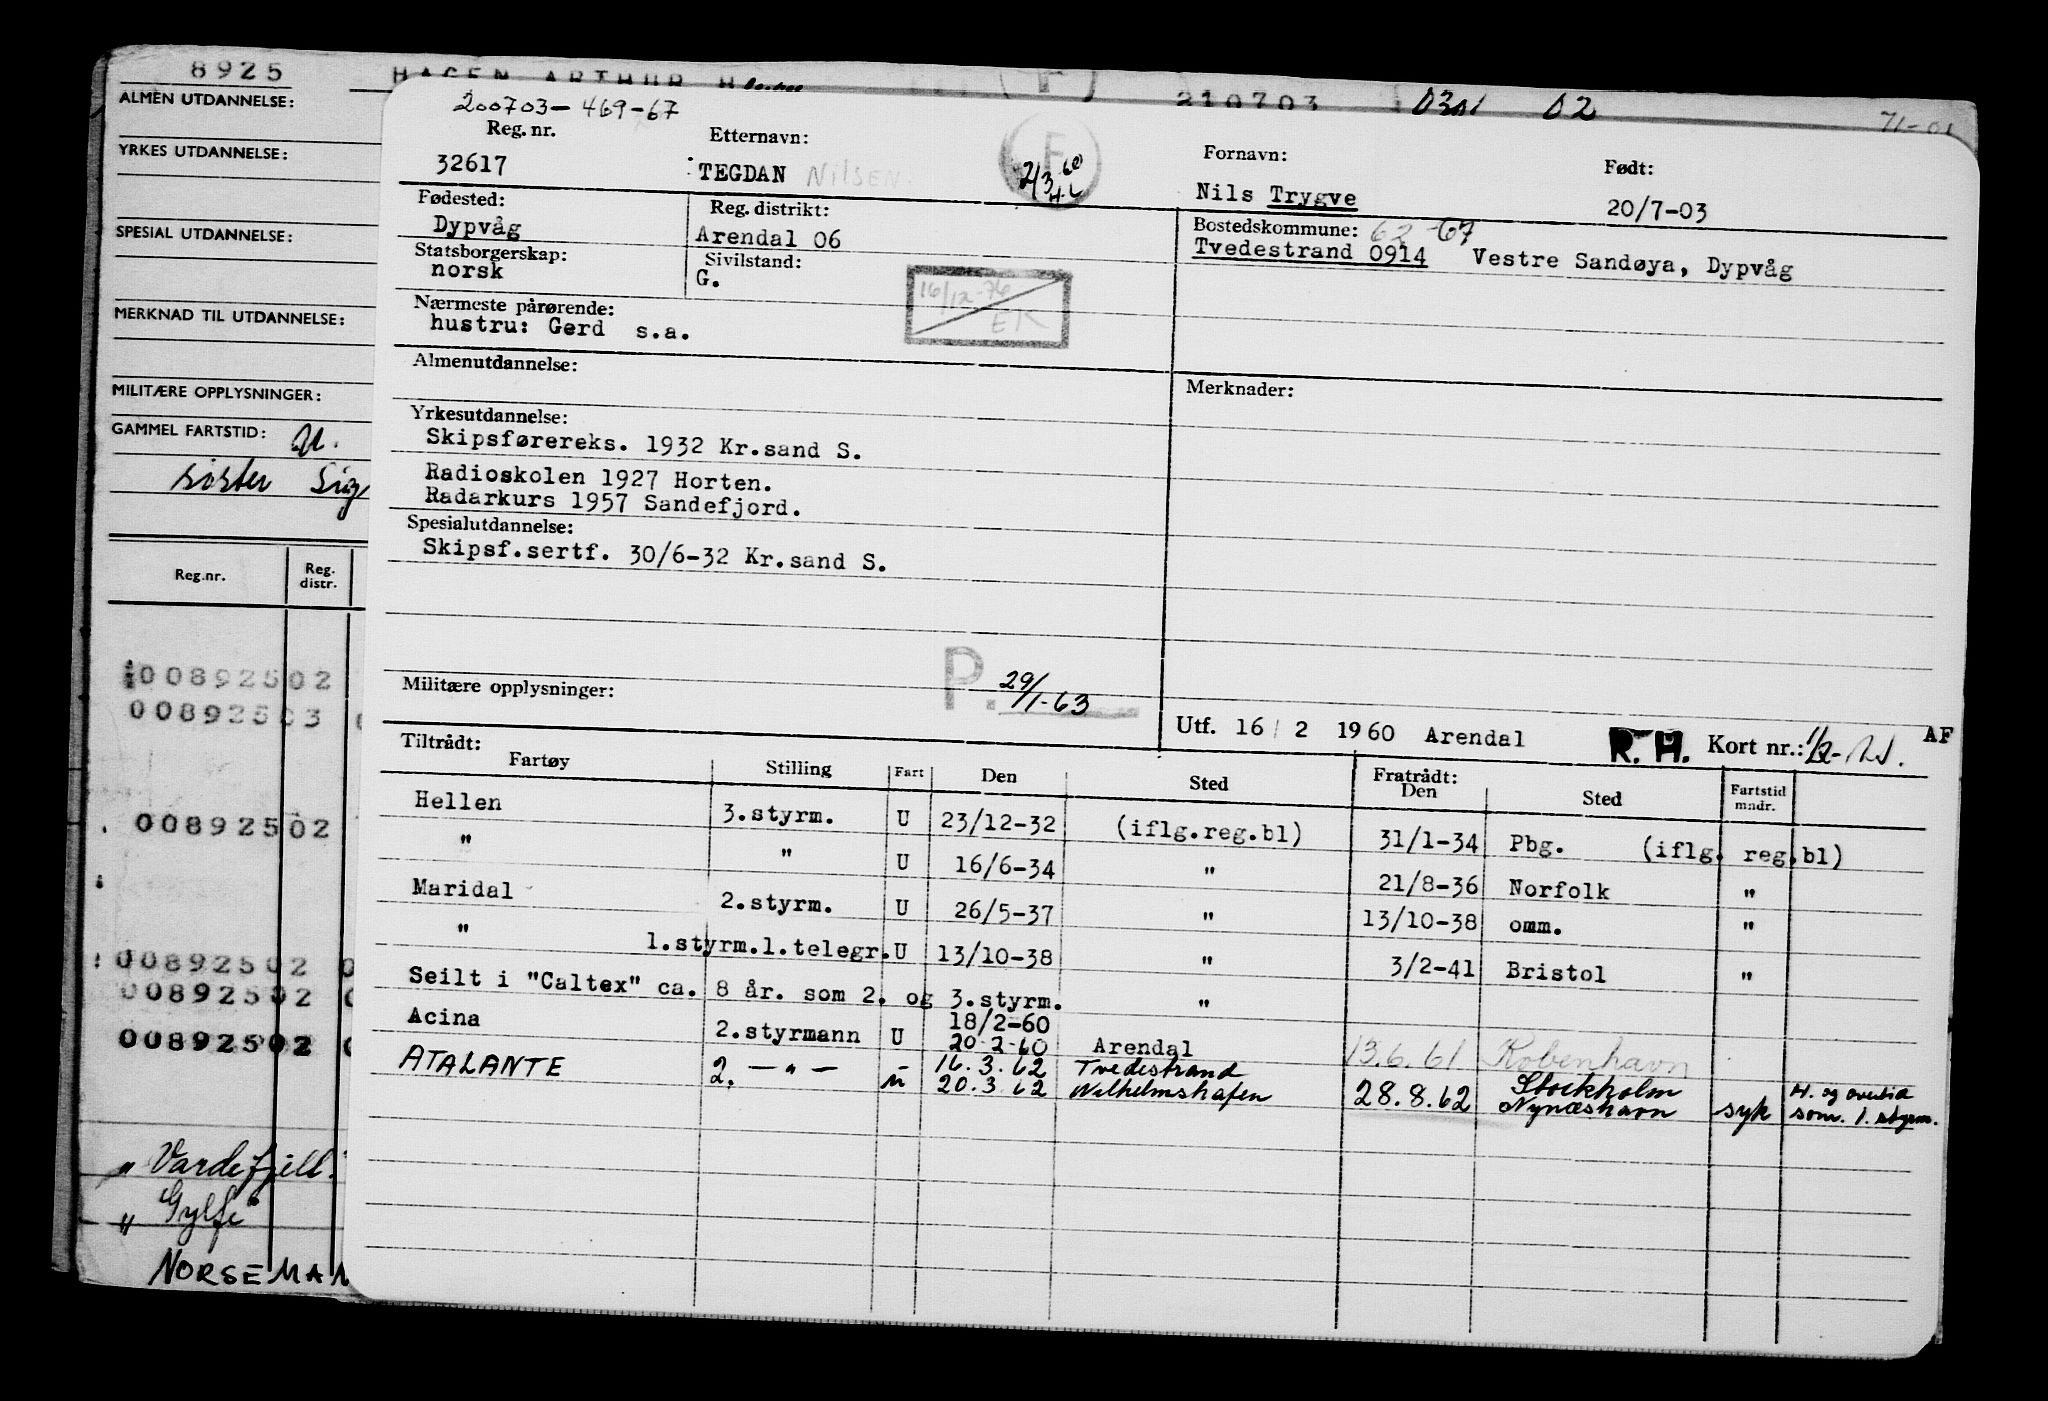 8925 HAGEN ARTHUR 210703 0301 02 71-01
ALMEN UTDANNELSE:
YRKES UTDANNELSE:
SPESIAL UTDANNELSE:
MERKNAD TIL UTDANNELSE:
MILITÆRE OPPLYSNINGER:
GAMMEL FARTSTID:
søster Sig
Reg.nr. Reg. distr.
00892502
00892503
00892502
00892502
00892502
00892502
" Vardefjell"
" Gylfe"
NORSEMAN
200703-469-67
Reg. nr. Etternavn: F Fornavn: Født:
32617 TEGDAN NILSEN 2/3-60 Nils Trygve 20/7-03
Fødested: Reg. distrikt: Bostedskommune: 62-67
Dypvåg Arendal 06 Tvedestrand 0914 Vestre Sandøya, Dypvåg
Statsborgerskap: Sivilstand:
norsk G.
16/12-76 EK
Nærmeste pårørende:
hustru: Gerd s.a.
Almenutdannelse: Merknader:
Yrkesutdannelse:
Skipsførereks. 1932 Kr.sand S.
Radioskolen 1927 Horten.
Radarkurs 1957 Sandefjord.
Spesialutdannelse:
Skipsf.sertf. 30/6-32 Kr.sand S.
Militære opplysninger: P. 29/1-63
Utf. 16/2 1960 Arendal R.H. Kort nr.: AF
Tiltrådt: Fratrådt:
Fartøy Stilling Fart Den Sted Den Sted Fartstid mndr.
Hellen 3.styrm. U 23/12-32 (iflg.reg.bl) 31/1-34 Pbg. (iflg. reg.bl)
" " U 16/6-34 " 21/8-36 Norfolk "
Maridal 2.styrm. U 26/5-37 " 13/10-38 omm. "
" 1.styrm.1.telegr. U 13/10-38 " 3/2-41 Bristol "
Seilt i "Caltex" ca. 8 år. som 2. og 3.styrm. "
18/2-60
Acina 2.styrmann U 20-2-60 Arendal 13.6.61 København
16.3.62 Tvedestrand Stockholm H. og overtid
ATALANTE 2. —"— U 20.3.62 Wilhelmshafen 28.8.62 Nynæshavn syk som 1. styrm.